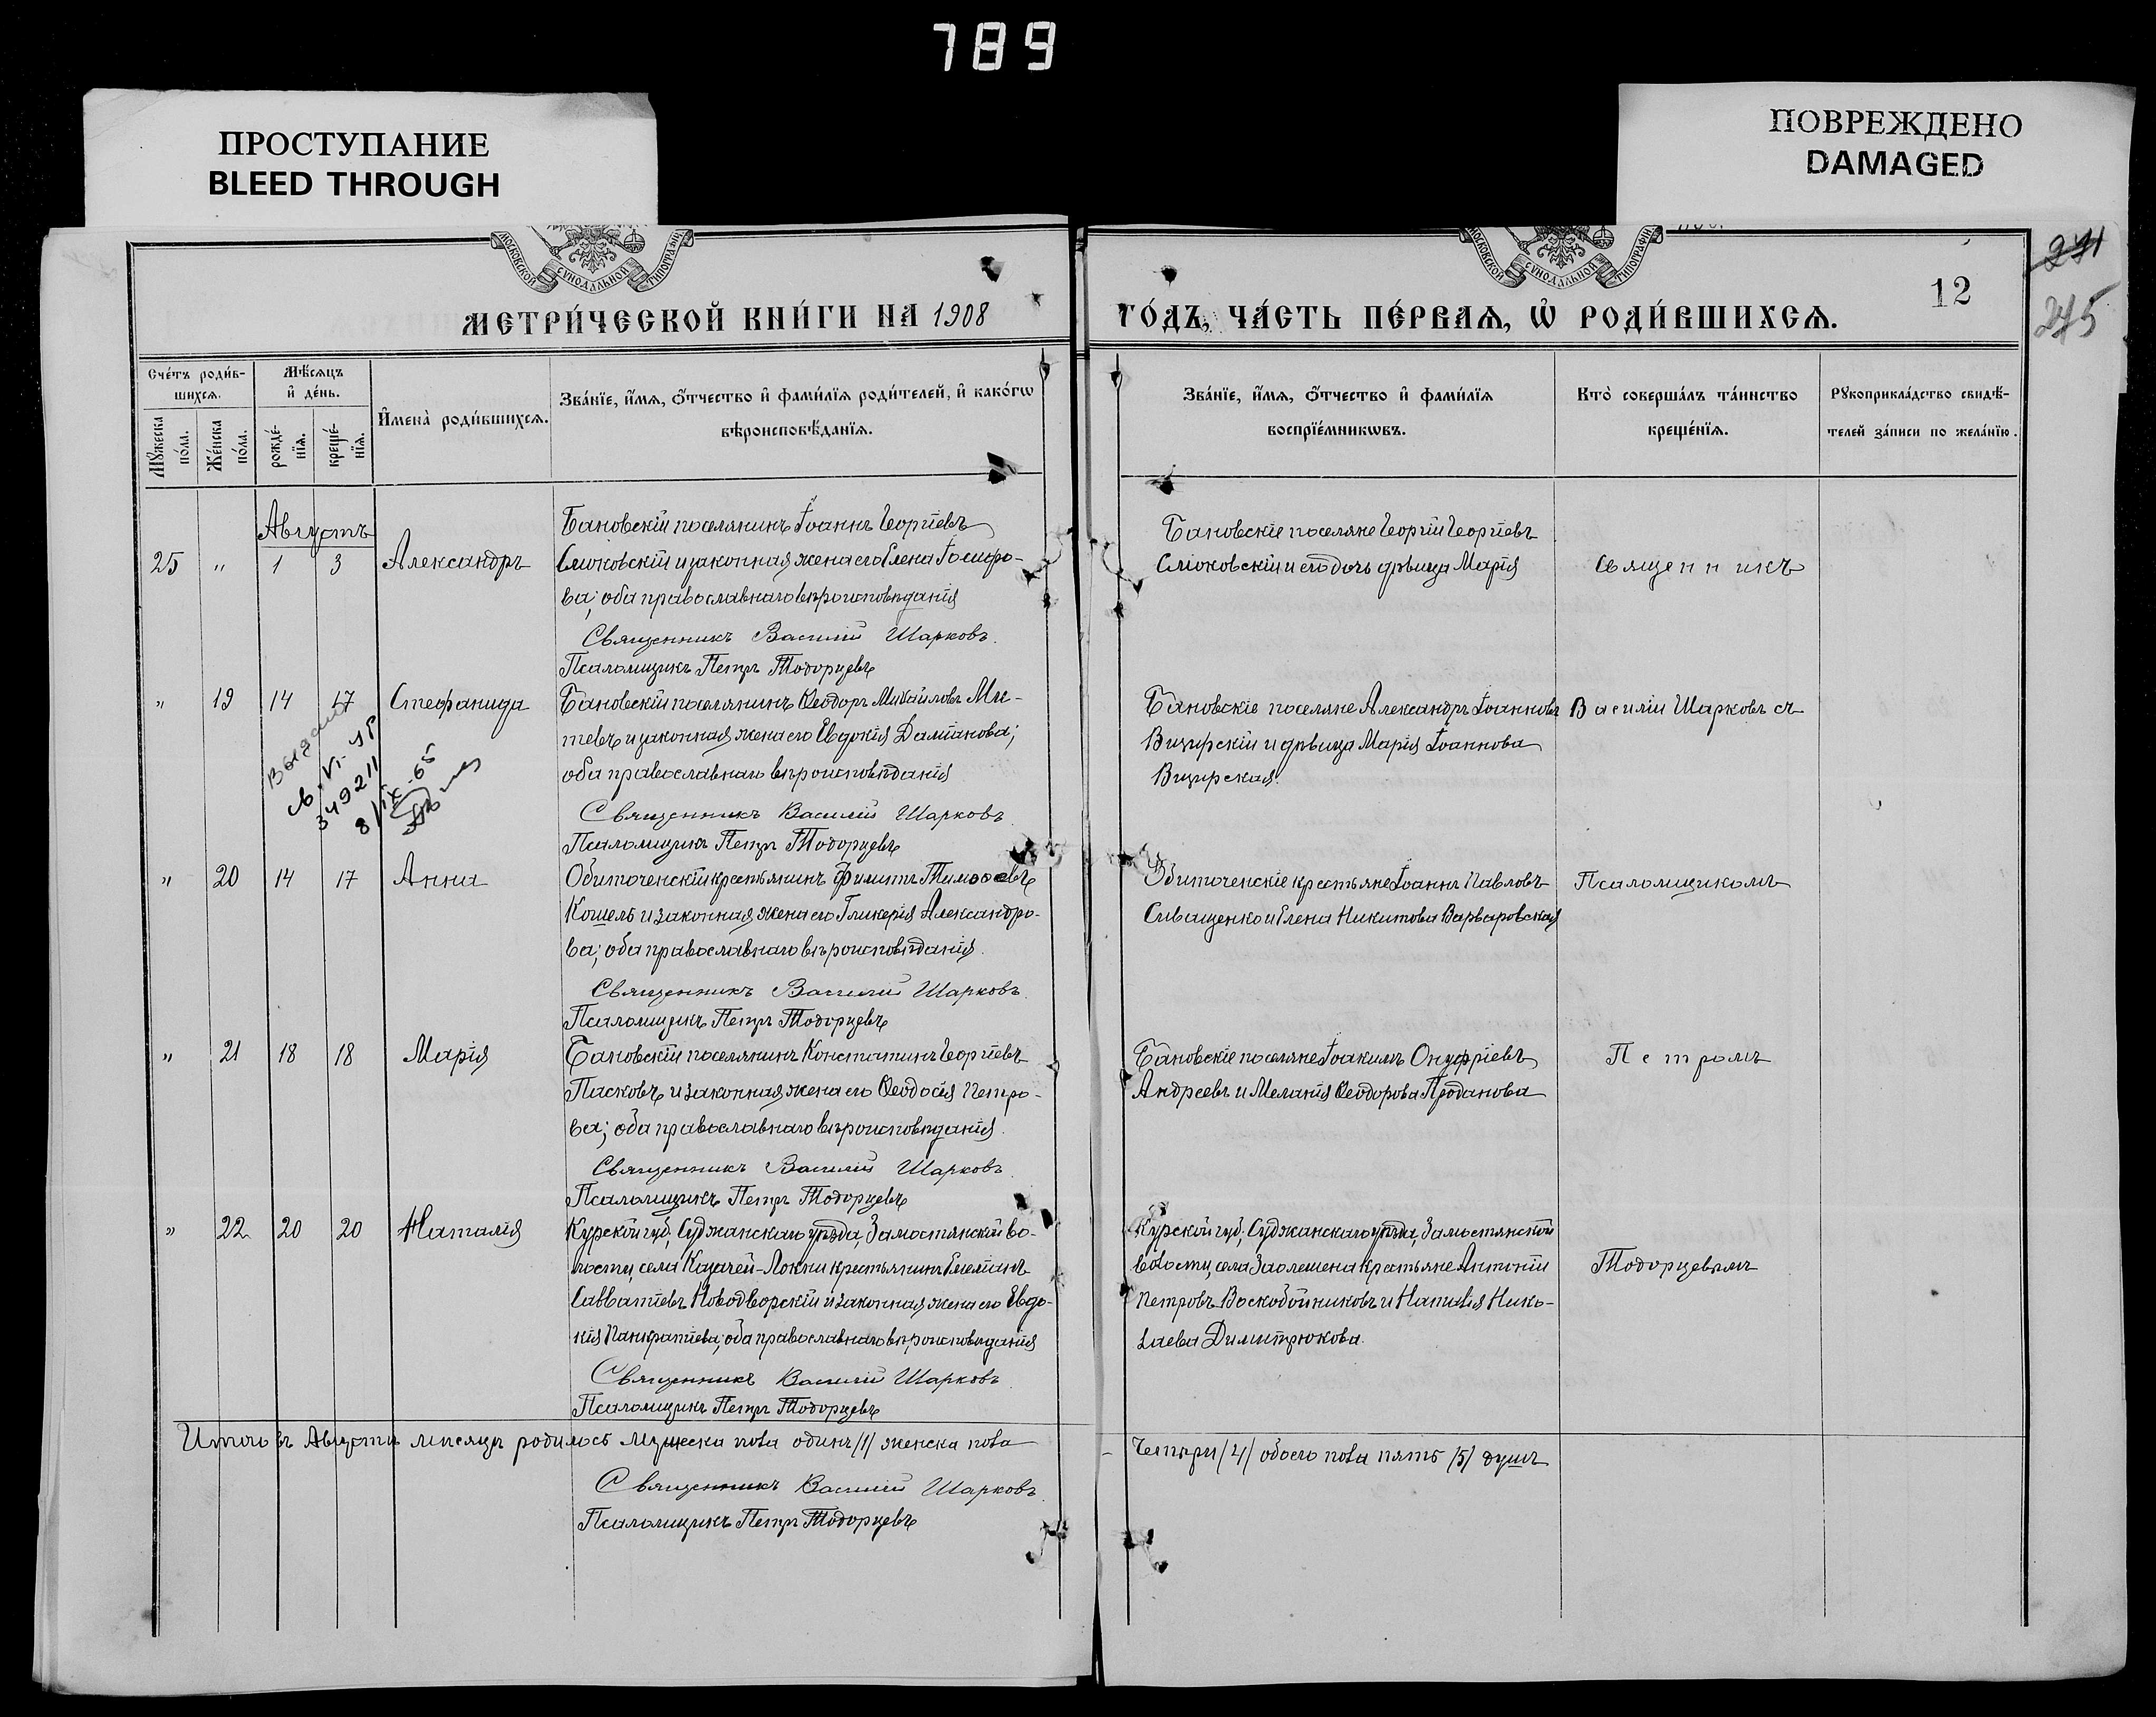 789
ПРОСТУПАНИЕ
BLEED THROUGH
ПОВРЕЖДЕНО
DAMAGED
МОСКОВСКОЙ СУНОДАЛЬНОЙ ТИПОГРАФІИ
МОСКОВСКОЙ СУНОДАЛЬНОЙ ТИПОГРАФІИ
241
12
245
МЕТРИ́ЧЕСКОЙ КНИ́ГИ НА 1908
ГО́ДЪ, ЧА́СТЬ ПЕ́РВАѦ, Ѡ҆ РОДИ́ВШИХСѦ.
Сче́тъ роди́в-
шихсѧ.
Мꙋ́жеска по́ла.
Же́нска по́ла.
Мѣ́сѧцъ
и҆ де́нь.
рожде́-
нїѧ.
креще́-
нїѧ.
И҆мена̀ роди́вшихсѧ.
Зва́нїе, и҆́мѧ, ѻ҆́тчество и҆ фами́лїѧ роди́телей, и҆ како́гѡ
вѣроисповѣ́данїѧ.
Зва́нїе, и҆́мѧ, ѻ҆́тчество и҆ фами́лїѧ
воспрїе́мникѡвъ.
Кто̀ соверша́лъ та́инство
креще́нїѧ.
Рꙋкоприкла́дство свидѣ́-
телей за́писи по жела́нїю.
Августъ
25 " 1 3 Александръ
Бановскій поселянинъ Іоаннъ Георгіевъ
Слюковскій и законная жена его Елена Іосифо-
ва; оба православнаго вѣроисповѣданія
Священникъ Василій Шарковъ.
Псаломщикъ Петръ Тодорцевъ
Бановскіе поселяне Георгій Георгіевъ
Слюковскій и его дочь дѣвица Марія
Священникъ
" 19 14 17 Стефанида
Бановскій поселянинъ Ѳеодоръ Михайловъ Ми-
тевъ и законная жена его Евдокія Даміанова;
оба православнаго вѣроисповѣданія
Священникъ Василій Шарковъ
Псаломщикъ Петръ Тодорцевъ
Бановскіе поселяне Александръ Іоанновъ
Визирскій и дѣвица Марія Іоаннова
Визирская.
Василій Шарковъ съ
349211
8/IX-65
" 20 14 17 Анна
Обиточенскій крестьянинъ Филиппъ Тимоѳеевъ
Кошель и законная жена его Гликерія Александро-
ва; оба православнаго вѣроисповѣданія.
Священникъ Василій Шарковъ.
Псаломщикъ Петръ Тодорцевъ
Обиточенскіе крестьяне Іоаннъ Павловъ
Сиващенко и Елена Никитова Варваровская
Псаломщикомъ
" 21 18 18 Марія
Бановскій поселянинъ Константинъ Георгіевъ
Пасковъ и законная жена его Ѳеодосія Петро-
ва; оба православнаго вѣроисповѣданія.
Священникъ Василій Шарковъ.
Псаломщикъ Петръ Тодорцевъ
Бановскіе поселяне Іоакимъ Онуфріевъ
Андреевъ и Меланія Ѳеодорова Проданова
Петромъ
" 22 20 20 Наталія
Курской губ; Суджанскаго уѣзда, Замостянской во-
лости, села Казачей-Локни крестьянинъ Емеліанъ
Савватіевъ Новодворскій и законная жена его Евдо-
кія Панкратіева; оба православнаго вѣроисповѣданія
Священникъ Василій Шарковъ
Псаломщикъ Петръ Тодорцевъ
Курской губ; Суджанскаго уѣзда, Замостянской
волости, села Заолешена крестьяне Антоній
Петровъ Воскобойниковъ и Наталія Нико-
лаева Димитрюкова.
Тодорцевымъ
Итого въ Августѣ мѣсяцѣ родилось мужеска пола одинъ /1/ женска пола
– четыри /4/ обоего пола пять /5/ душъ
Священникъ Василій Шарковъ
Псаломщикъ Петръ Тодорцевъ